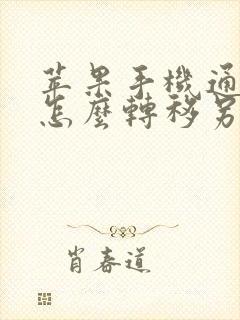 苹果手機通
怎麼轉移另
肖春道